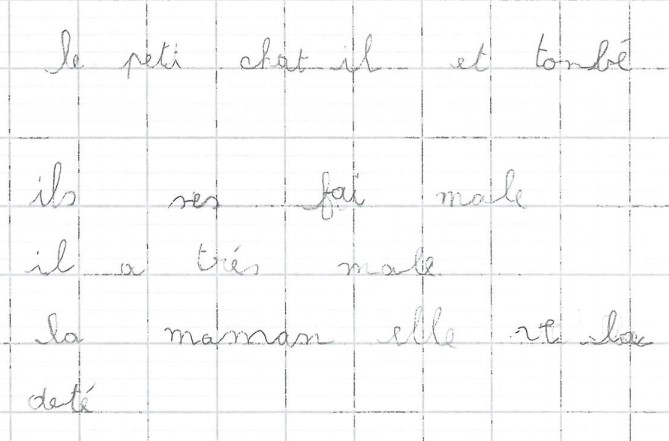 le peti chat il et tonbé
ils ses fai male
il a trés male
la maman elle et la
deté